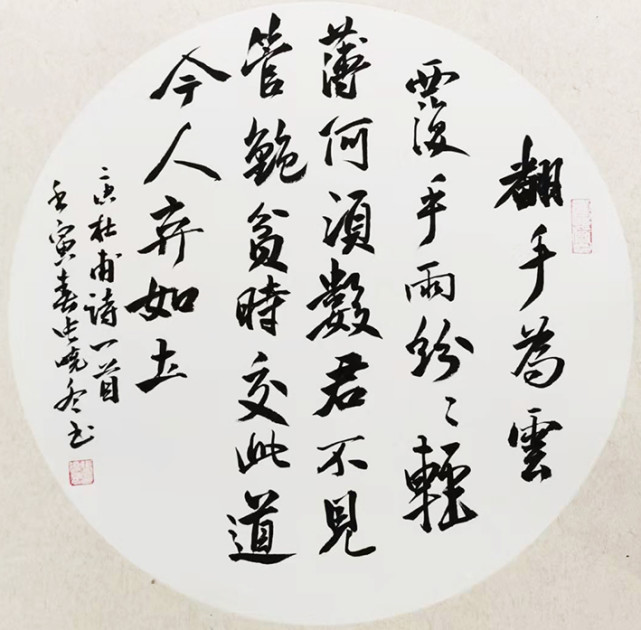 翻手為雲
覆手雨紛〻輕
薄何須數君不見
管鮑貧時交此道
今人弃如土
录杜甫詩一首
壬寅春曉冬书